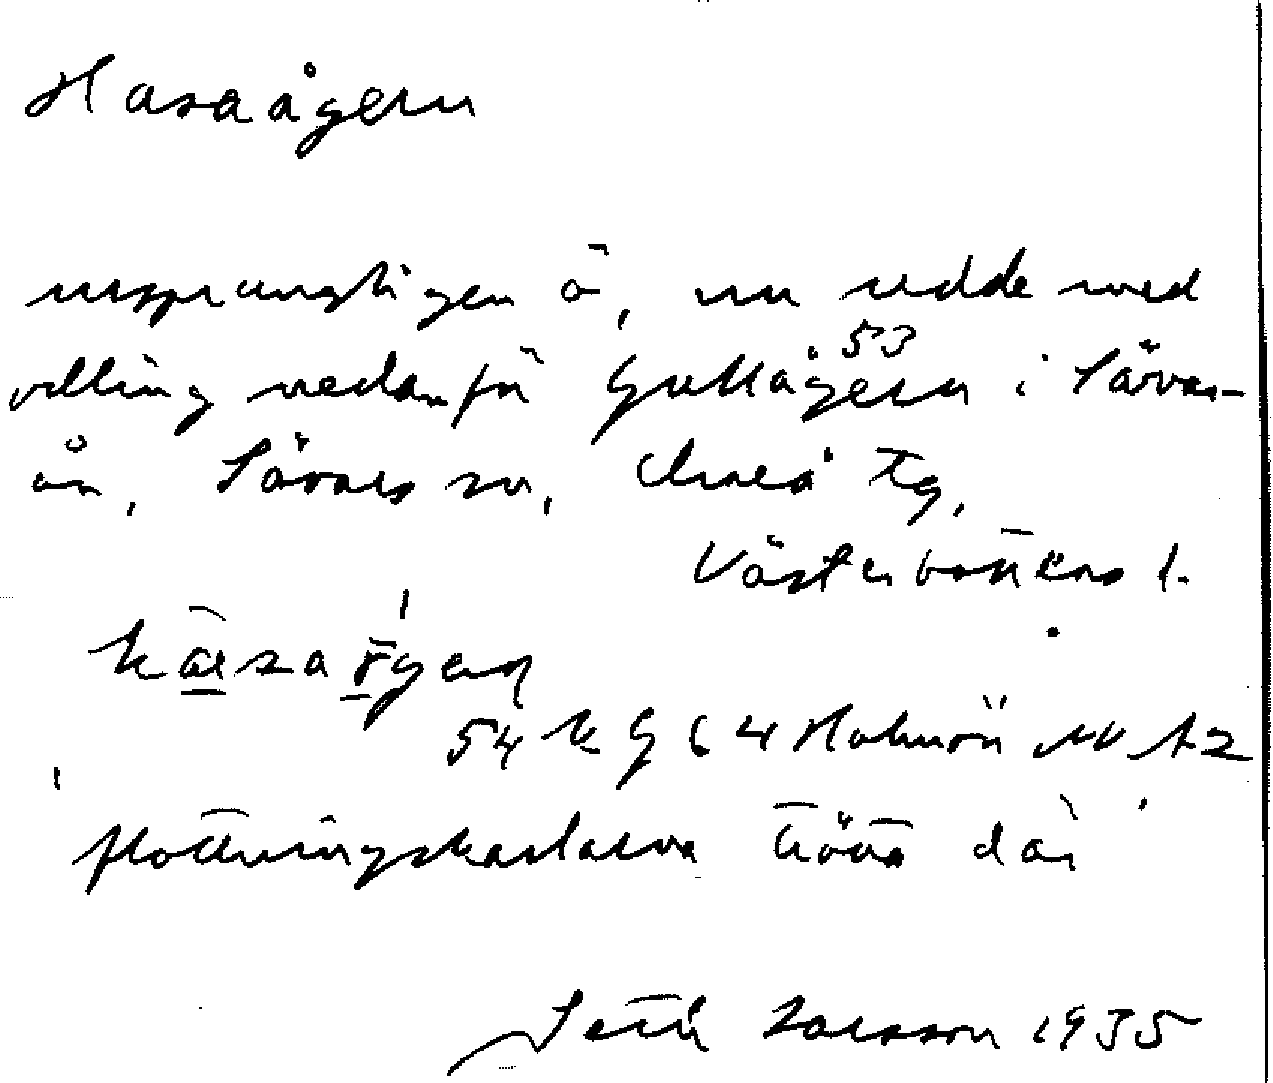 Hasaågern
ursprungligen ö, nu udde med
välling nedanför Gullågern 53 i Sävar-
ån, Sävars sn, Umeå tg,
Västerbottens l.
54 k G 64 Holmön NV A2
'flottningskarlarna trötta där'
Seth Larsson 1935